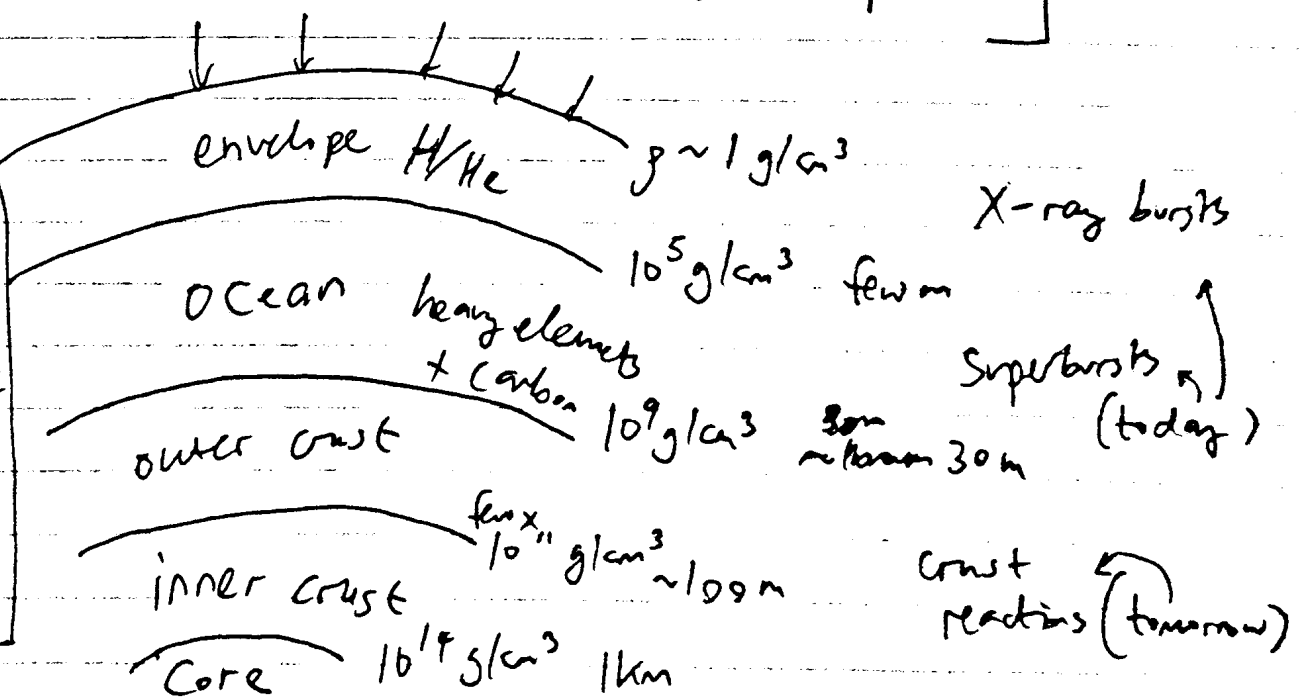 envelope H/He
ρ ~ 1 g/cm³
X-ray bursts
10⁵ g/cm³ few m
ocean heavy elements
+ carbon
Superbursts
(today)
10⁹ g/cm³ 30m
outer crust
few x
10¹¹ g/cm³
~100m
inner crust
crust
reactions (tomorrow)
core 10¹⁴ g/cm³ 1km